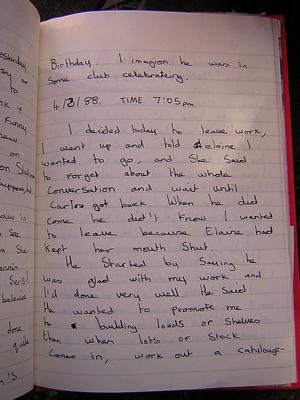 Birthday. I imagion he was in
some club celebrateing.
4/3/88. TIME 7:05pm.
I decided today to leave work,
I went up and told elaine I
wanted to go, and She Said
to forget about the whole
Conversation and wait until
Carlos got back. When he did
come he did't know I wanted
to leave because Elaine had
kept her mouth Shut.
He Started by Saying he
was glad with my work and
I'd done very well. He Said
he wanted to promote me
to building loads of Shelves
then when lots of Stock
comes in, work out a catalouge-